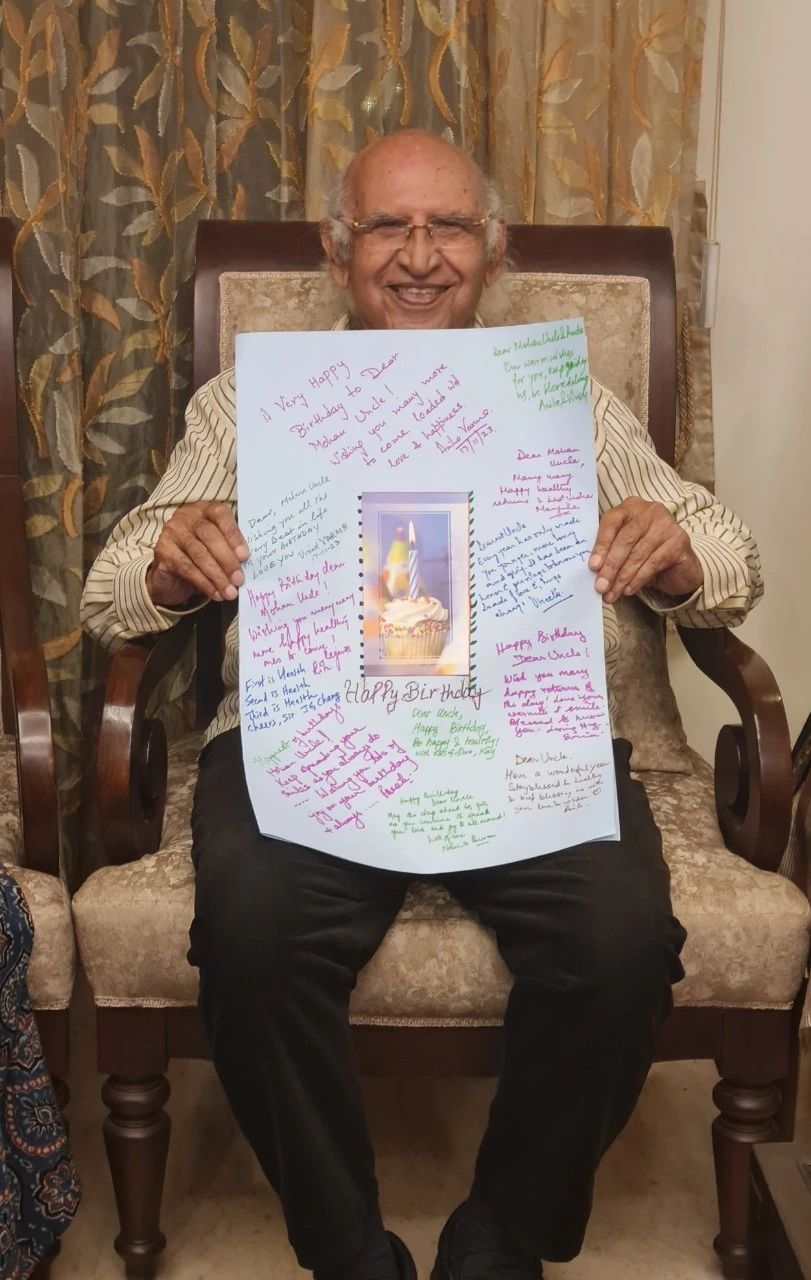 A Very Happy
Birthday to Dear
Mohan Uncle!
Wishing you many more
to come loaded
love & happiness.
Varma
17/11/23.
Dear Mohan Uncle &
Our warm wishes
for you, keep
us, be
Anita &
Dear, Mohan Uncle
Wishing you all the
very Best in life
on your BIRTHDAY
LOVE YOU Vinod VARMA
17-11-23
Dear Mohan
Uncle,
Many many
Happy healthy
returns & best wishes
Manjula
Dearest Uncle
Every year has only made
you younger, more loving
and giving. It has been an
honour & privilege to know you
Loads of love & hugs
always
Happy Birthday dear
Mohan Uncle!
Wishing you many many
more happy healthy
ones to come!
First is Health
Second is Health
Third is Health
Cheers, Sir
Happy Birthday
Happy Birthday
Dear Uncle!
Wish you many
happy returns of
the day! Love your
warmth & smile.
Blessed to know
you. Loving Hugs
Dear Uncle,
Happy Birthday,
Be happy & healthy!
with lots of love, Kay
Happiest of birthdays
Mohan Uncle!
Keep spreading your
smiles as you always do
.... Wishing you lots of
joy on your birthday
& always ....
Happy Birthday
Dear Uncle
May the days ahead be full
as you continue to spread
your love and joy to all around!
Lots of love
Dear Uncle,
Have a wonderful year
Stay blessed & healthy
& keep blessing us with
your love & wisdom